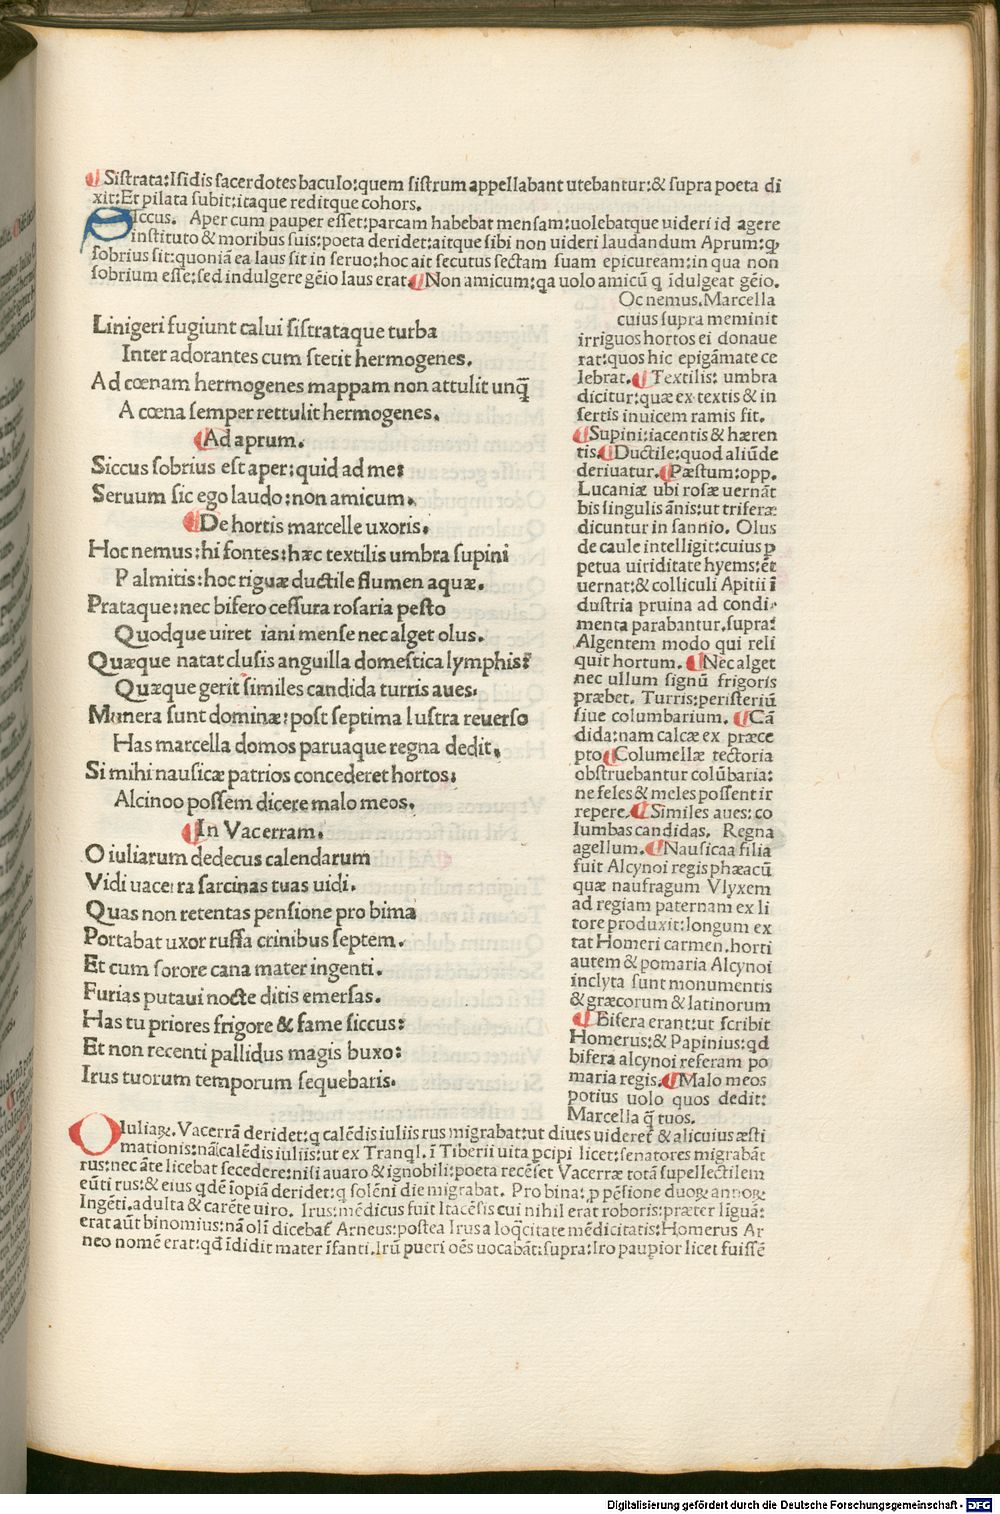 Siſtrata:Iſidis ſacerdotes baculo:quem ſiſtrum appellabant utebantur:& ſupra poeta di
xit:Et pilata ſubit:itaque reditque cohors.
SIccus. Aper cum pauper eſſet:parcam habebat menſam:uolebatque uideri id agere
inſtituto & moribus ſuis:poeta deridet:aitque ſibi non uideri laudandum Aprum:ꝙ
ſobrius ſit:quoniā ea laus ſit in ſeruo:hoc ait ſecutus ſectam ſuam epicuream:in qua non
ſobrium eſſe:ſed indulgere gēio laus erat. Non amicum:qa uolo amicū q īdulgeat gēio.
Linigeri fugiunt calui ſiſtrataque turba
Inter adorantes cum ſtetit hermogenes.
Ad cœnam hermogenes mappam non attulit unq̄
A cœna ſemper rettulit hermogenes.
Ad aprum.
Siccus ſobrius eſt aper:quid ad me:
Seruum ſic ego laudo:non amicum.
De hortis marcelle uxoris.
Hoc nemus:hi fontes:hæc textilis umbra ſupini
Palmitis:hoc riguæ ductile flumen aquæ.
Prataque:nec bifero ceſſura roſaria peſto
Quodque uiret iani menſe nec alget olus.
Quæque natat cluſis anguilla domeſtica lymphis:
Quæque gerit ſimiles candida turris aues.
Munera ſunt dominæ:poſt ſeptima luſtra reuerſo
Has marcella domos paruaque regna dedit.
Si mihi nauſicæ patrios concederet hortos:
Alcinoo poſſem dicere malo meos.
In Vacerram.
O iuliarum dedecus calendarum
Vidi uacerra ſarcinas tuas uidi.
Quas non retentas penſione pro bima
Portabat uxor ruffa crinibus ſeptem.
Et cum ſorore cana mater ingenti.
Furias putaui nocte ditis emerſas.
Has tu priores frigore & fame ſiccus:
Et non recenti pallidus magis buxo:
Irus tuorum temporum ſequebaris.
Oc nemus.Marcella
cuius ſupra meminit
irriguos hortos ei donaue
rat:quos hic epigāmate ce
lebrat. Textilis: umbra
dicitur:quæ ex textis & in
ſertis inuicem ramis fit.
Supini:iacentis & hæren
tis. Ductile:quod aliūde
deriuatur. Pæſtum:opp.
Lucaniæ ubi roſæ uernāt
bis ſingulis ānis:ut triferæ
dicuntur in ſannio. Olus
de caule intelligit:cuius ꝑ
petua uiriditate hyems:ēt
uernat:& colliculi Apitii ī
duſtria pruina ad condi-
menta parabantur.ſupra:
Algentem modo qui reli
quit hortum. Nec alget
nec ullum ſignū frigoris
præbet. Turris:periſteriū
ſiue columbarium. Cā
dida:nam calcæ ex præce
pto Columellæ tectoria
obſtruebantur colūbaria:
ne feles & meles poſſent ir
repere. Similes aues: co
lumbas candidas. Regna
agellum. Nauſicaa filia
fuit Alcynoi regis phæacū
quæ naufragum Vlyxem
ad regiam paternam ex li
tore produxit:longum ex
tat Homeri carmen.horti
autem & pomaria Alcynoi
inclyta ſunt monumentis
& græcorum & latinorum
Bifera erant:ut ſcribit
Homerus:& Papinius:qd
bifera alcynoi referam po
maria regis. Malo meos
potius uolo quos dedit:
Marcella q̄ tuos.
O Iuliaꝝ. Vacerrā deridet:ꝙ calēdis iuliis rus migrabat:ut diues uideret̄ & alicuius æſti
mationis:nā calēdis iuliis:ut ex Tranql. ī Tiberii uita ꝑcipi licet:ſenatores migrabāt
rus:nec āte licebat ſecedere:niſi auaro & ignobili:poeta recēſet Vacerræ totā ſupellectilem
eūti rus:& eius qdē īopiā deridet:ꝙ ſolēni die migrabat. Pro bina:ꝓ pēſione duoꝝ annoꝝ
Ingēti.adulta & carēte uiro. Irus:mēdicus fuit Itacēſis cui nihil erat roboris:præter liguā:
erat aūt binomius:nā olī dicebat̄ Arneus:poſtea Irus a loq̄citate mēdicitatis:Homerus Ar
neo nomē erat:qd īdidit mater īfanti.Irū pueri oēs uocabāt:ſupra:Iro pauꝑior licet fuiſſē
Digitalisierung gefördert durch die Deutsche Forschungsgemeinschaft - DFG